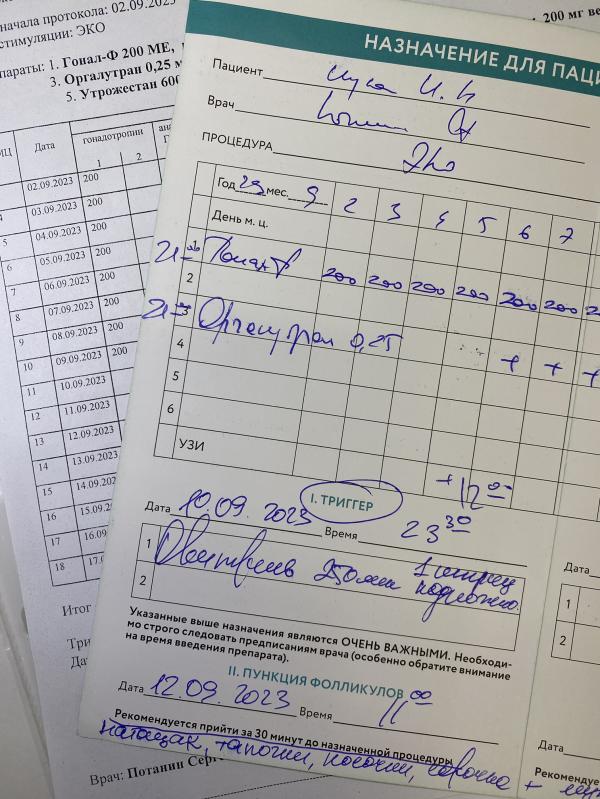 начала протокола: 02.09.2023
стимуляции: ЭКО
200 мг ве
параты: 1. Гонал-Ф 200 МЕ,
3. Оргалутран 0,25 м
5. Утрожестан 600
Дата
гоналотропини
1 2
02.09.2023 200
4 03.09.2023 200
5 04.09.2023 200
6 05.09.2023 200
7 06.09.2023 200
8 07.09.2023 200
9 08.09.2023 200
10 09.09.2023 200
11 10.09.2023
12 11.09.2023
13 12.09.2023
14 13.09.2023
15 14.09.202
16 15.09.
17 16.09
18 17.0
Итог
Три
Да
Врач: Потанин Серг
НАЗНАЧЕНИЕ ДЛЯ ПАЦИ
Пациент
Врач
ПРОЦЕДУРА Эко
Год 23 мес. 9 2 3 4 5 6 7
День м. ц.
1 21 00 Гонал Ф 200 200 200 200 200 200 2
2
3 21 Оргалутран 0,25 + + +
4
5
6
УЗИ + 12 00
I. ТРИГГЕР
Дата 10.09.2023 Время 23 30
1 Овитрель 250 мкг 1 шприц подкожно
2
Указанные выше назначения являются ОЧЕНЬ ВАЖНЫМИ. Необходи-
мо строго следовать предписаниям врача (особенно обратите внимание
на время введения препарата).
II. ПУНКЦИЯ ФОЛЛИКУЛОВ
Дата 12.09.2023 Время 11 00
Рекомендуется прийти за 30 минут до назначенной процедуры
натощак, тапочки, носочки, сорочка +
Дата
1
2
Дата